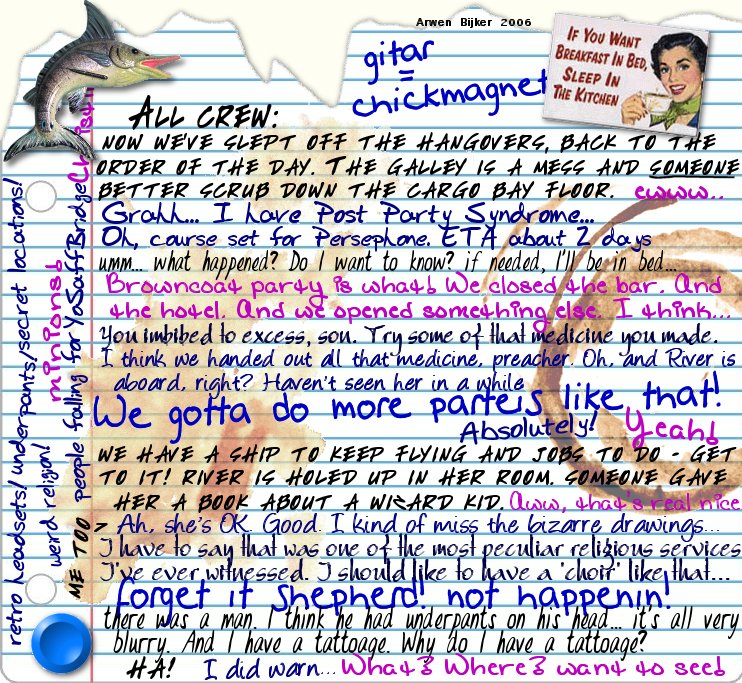 Arwen Bijker 2006
gitar
=
chickmagnet
IF YOU WANT
BREAKFAST IN BED,
SLEEP IN
THE KITCHEN
ALL CREW:
NOW WE'VE SLEPT OFF THE HANGOVERS, BACK TO THE
ORDER OF THE DAY. THE GALLEY IS A MESS AND SOMEONE
BETTER SCRUB DOWN THE CARGO BAY FLOOR. ewww..
Grahh... I have Post Party Syndrome...
Oh, course set for Persephone. ETA about 2 days
umm... what happened? Do I want to know? if needed, I'll be in bed...
Browncoat party is what! We closed the bar. And
the hotel. And we opened something else. I think...
You imbibed to excess, son. Try some of that medicine you made.
I think we handed out all that medicine, preacher. Oh, and River is
aboard, right? Haven't seen her in a while
We gotta do more parteis like that!
Absolutely! Yeah!
WE HAVE A SHIP TO KEEP FLYING AND JOBS TO DO - GET
TO IT! RIVER IS HOLED UP IN HER ROOM. SOMEONE GAVE
HER A BOOK ABOUT A WIZARD KID. Aww, that's real nice
Ah, she's OK. Good. I kind of miss the bizarre drawings...
I have to say that was one of the most peculiar religious services
I've ever witnessed. I should like to have a 'choir' like that...
forget it Shepherd! not happenin!
there was a man. I think he had underpants on his head... it's all very
blurry. And I have a tattoage. Why do I have a tattoage?
HA! I did warn... What? Where? want to see!
retro headsets/underpants/secret locations!
weird religion!
minions!
people falling for YoSaffBridge
ME TOO >